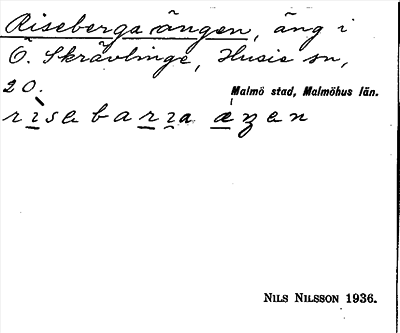 Riseberga ängen, äng i
Ö. Skrävlinge, Husie sn,
20. Malmö stad, Malmöhus län.
risabaria æŋen
NILS NILSSON 1936.